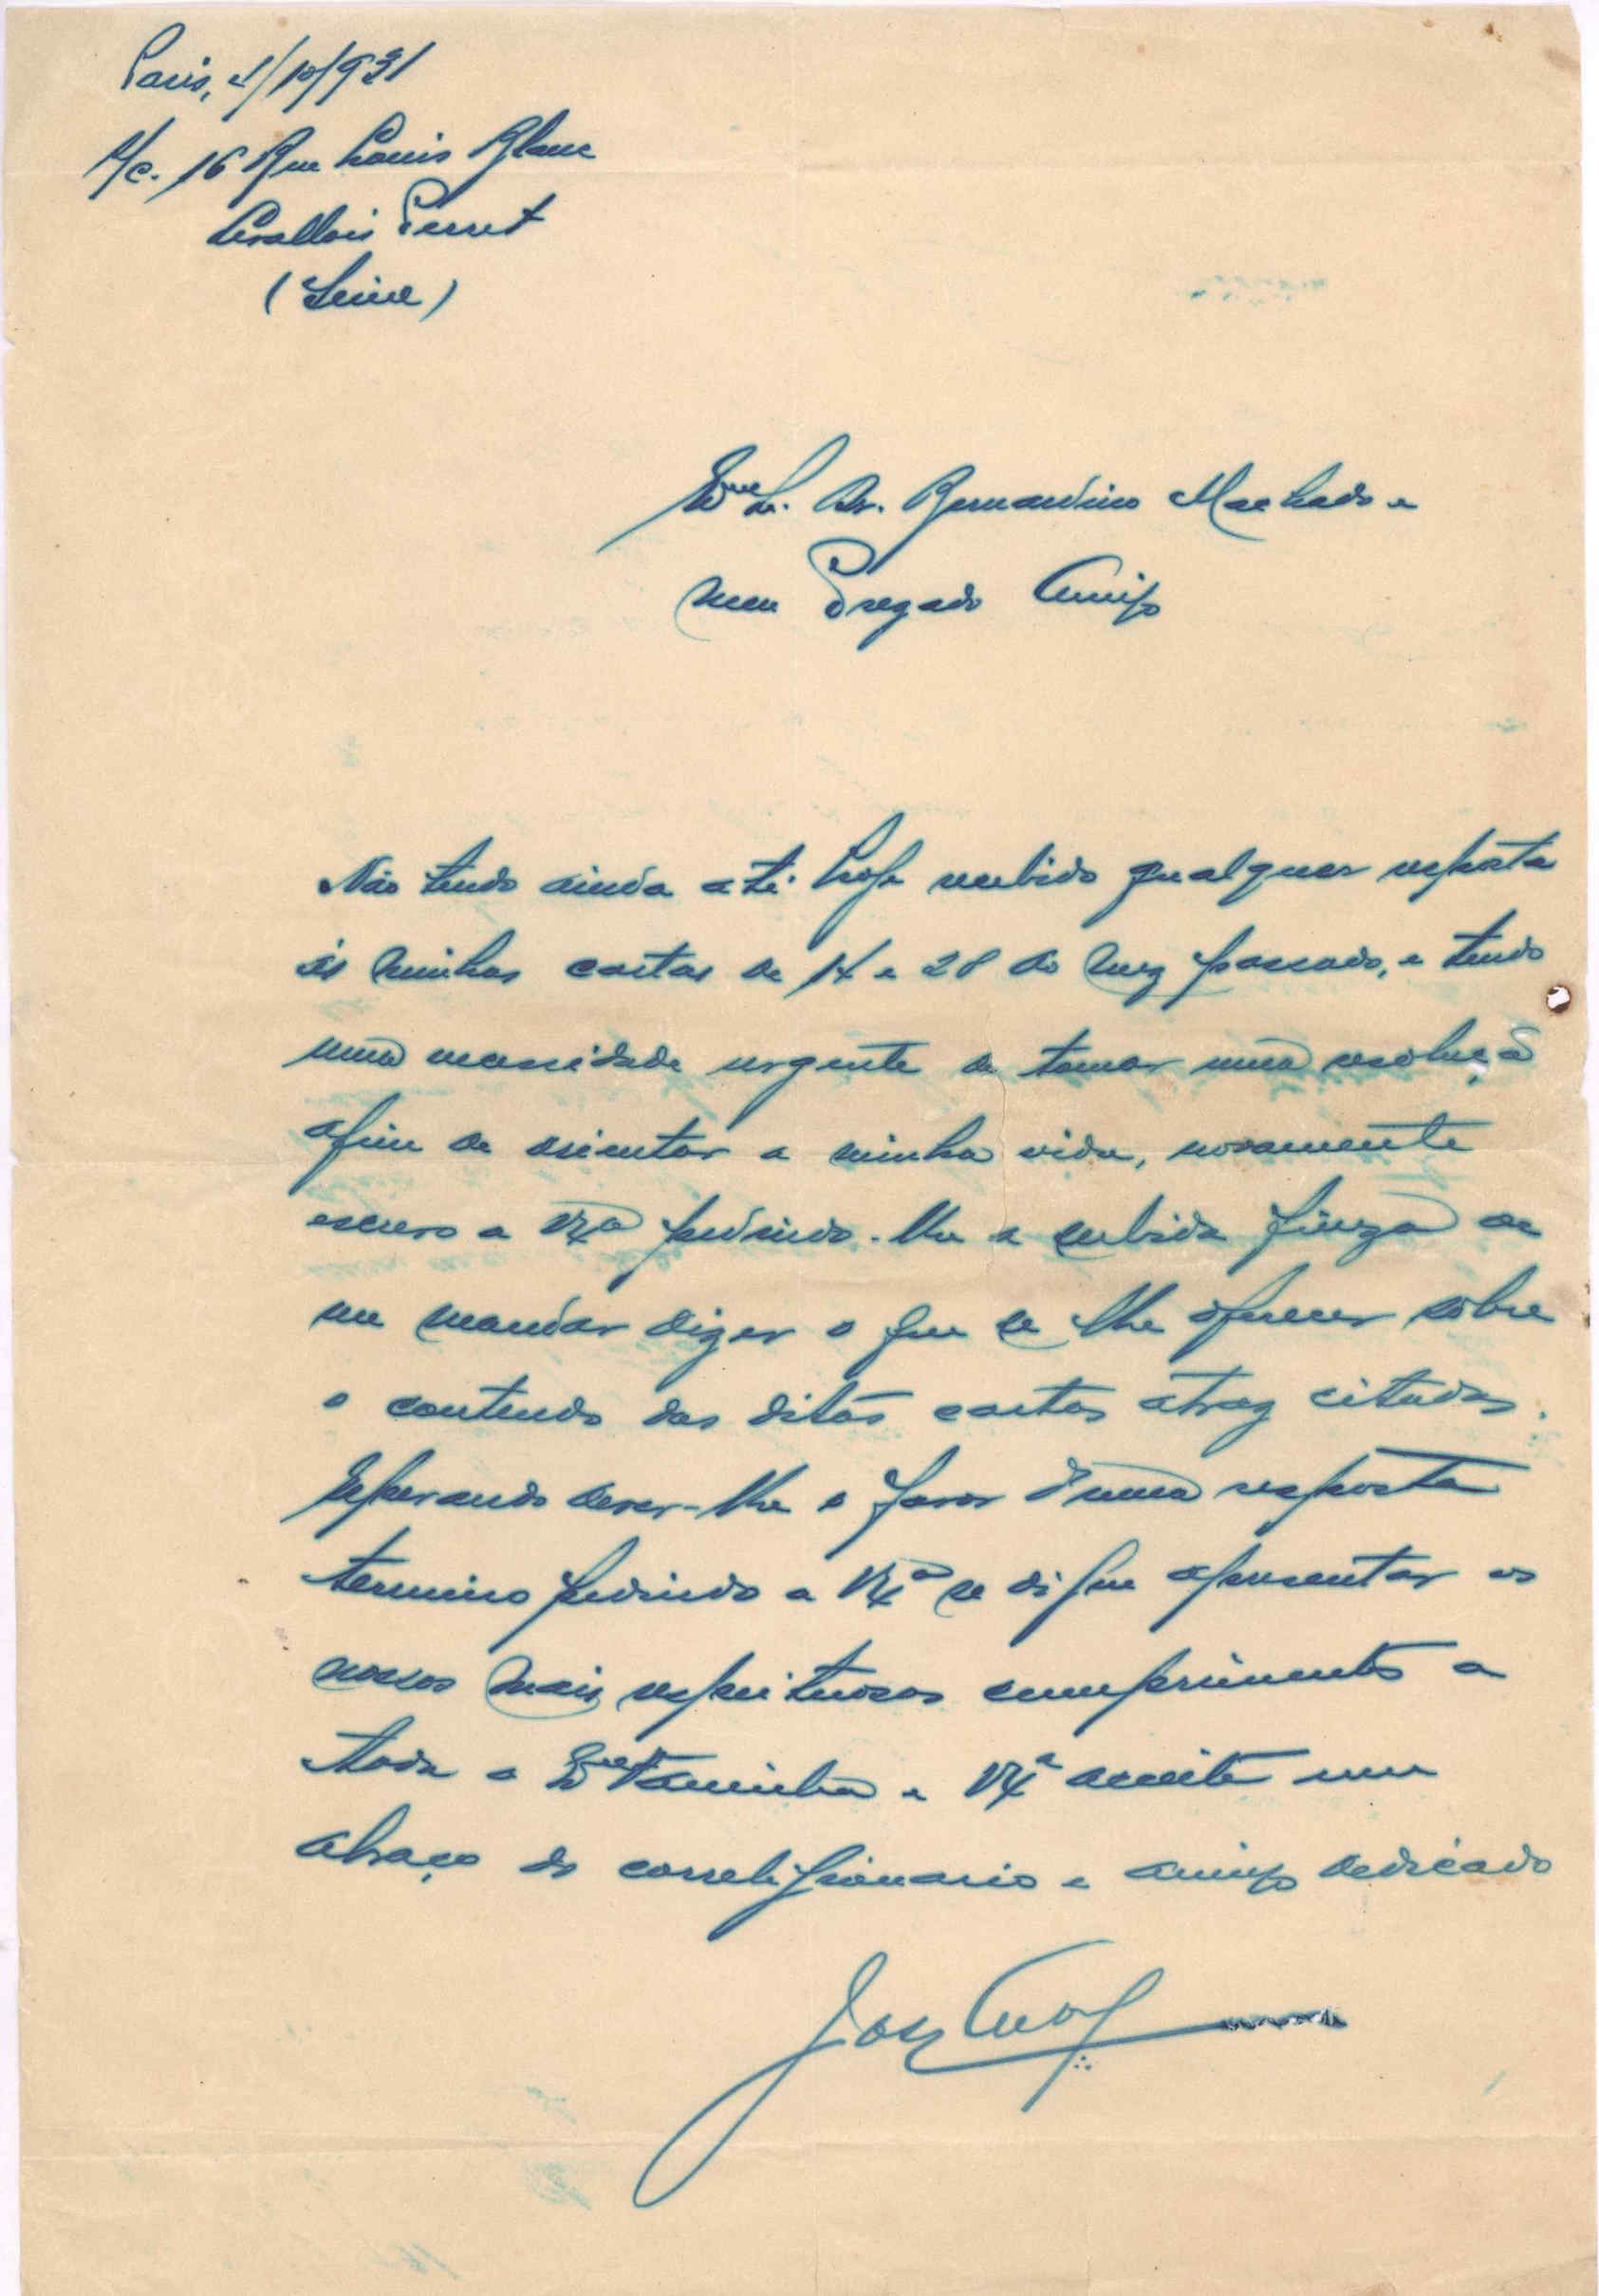 Paris, 4/10/931
A/c. 16 Rue Louis Blanc
Levallois Perret
(Seine)
Exmo Sr. Dr. Bernardino Machado e
meu Prezado Amigo
Não tendo ainda até hoje recebido qualquer resposta
ás minhas cartas de 14 e 28 do mez passado, e tendo
uma necessidade urgente de tomar uma resolução
afim de orientar a minha vida, novamente
escrevo a V. Exa pedindo-lhe a subida fineza de
me mandar dizer o que se lhe oferecer sôbre
o conteudo das ditas cartas atraz citadas.
Esperando dever-lhe o favor d'uma resposta
termino pedindo a V. Exa se digne apresentar os
nossos mais respeitosos cumprimentos a
toda a Exma Familia e V. Exa aceite um
abraço do correligionario e amigo dedicado
José